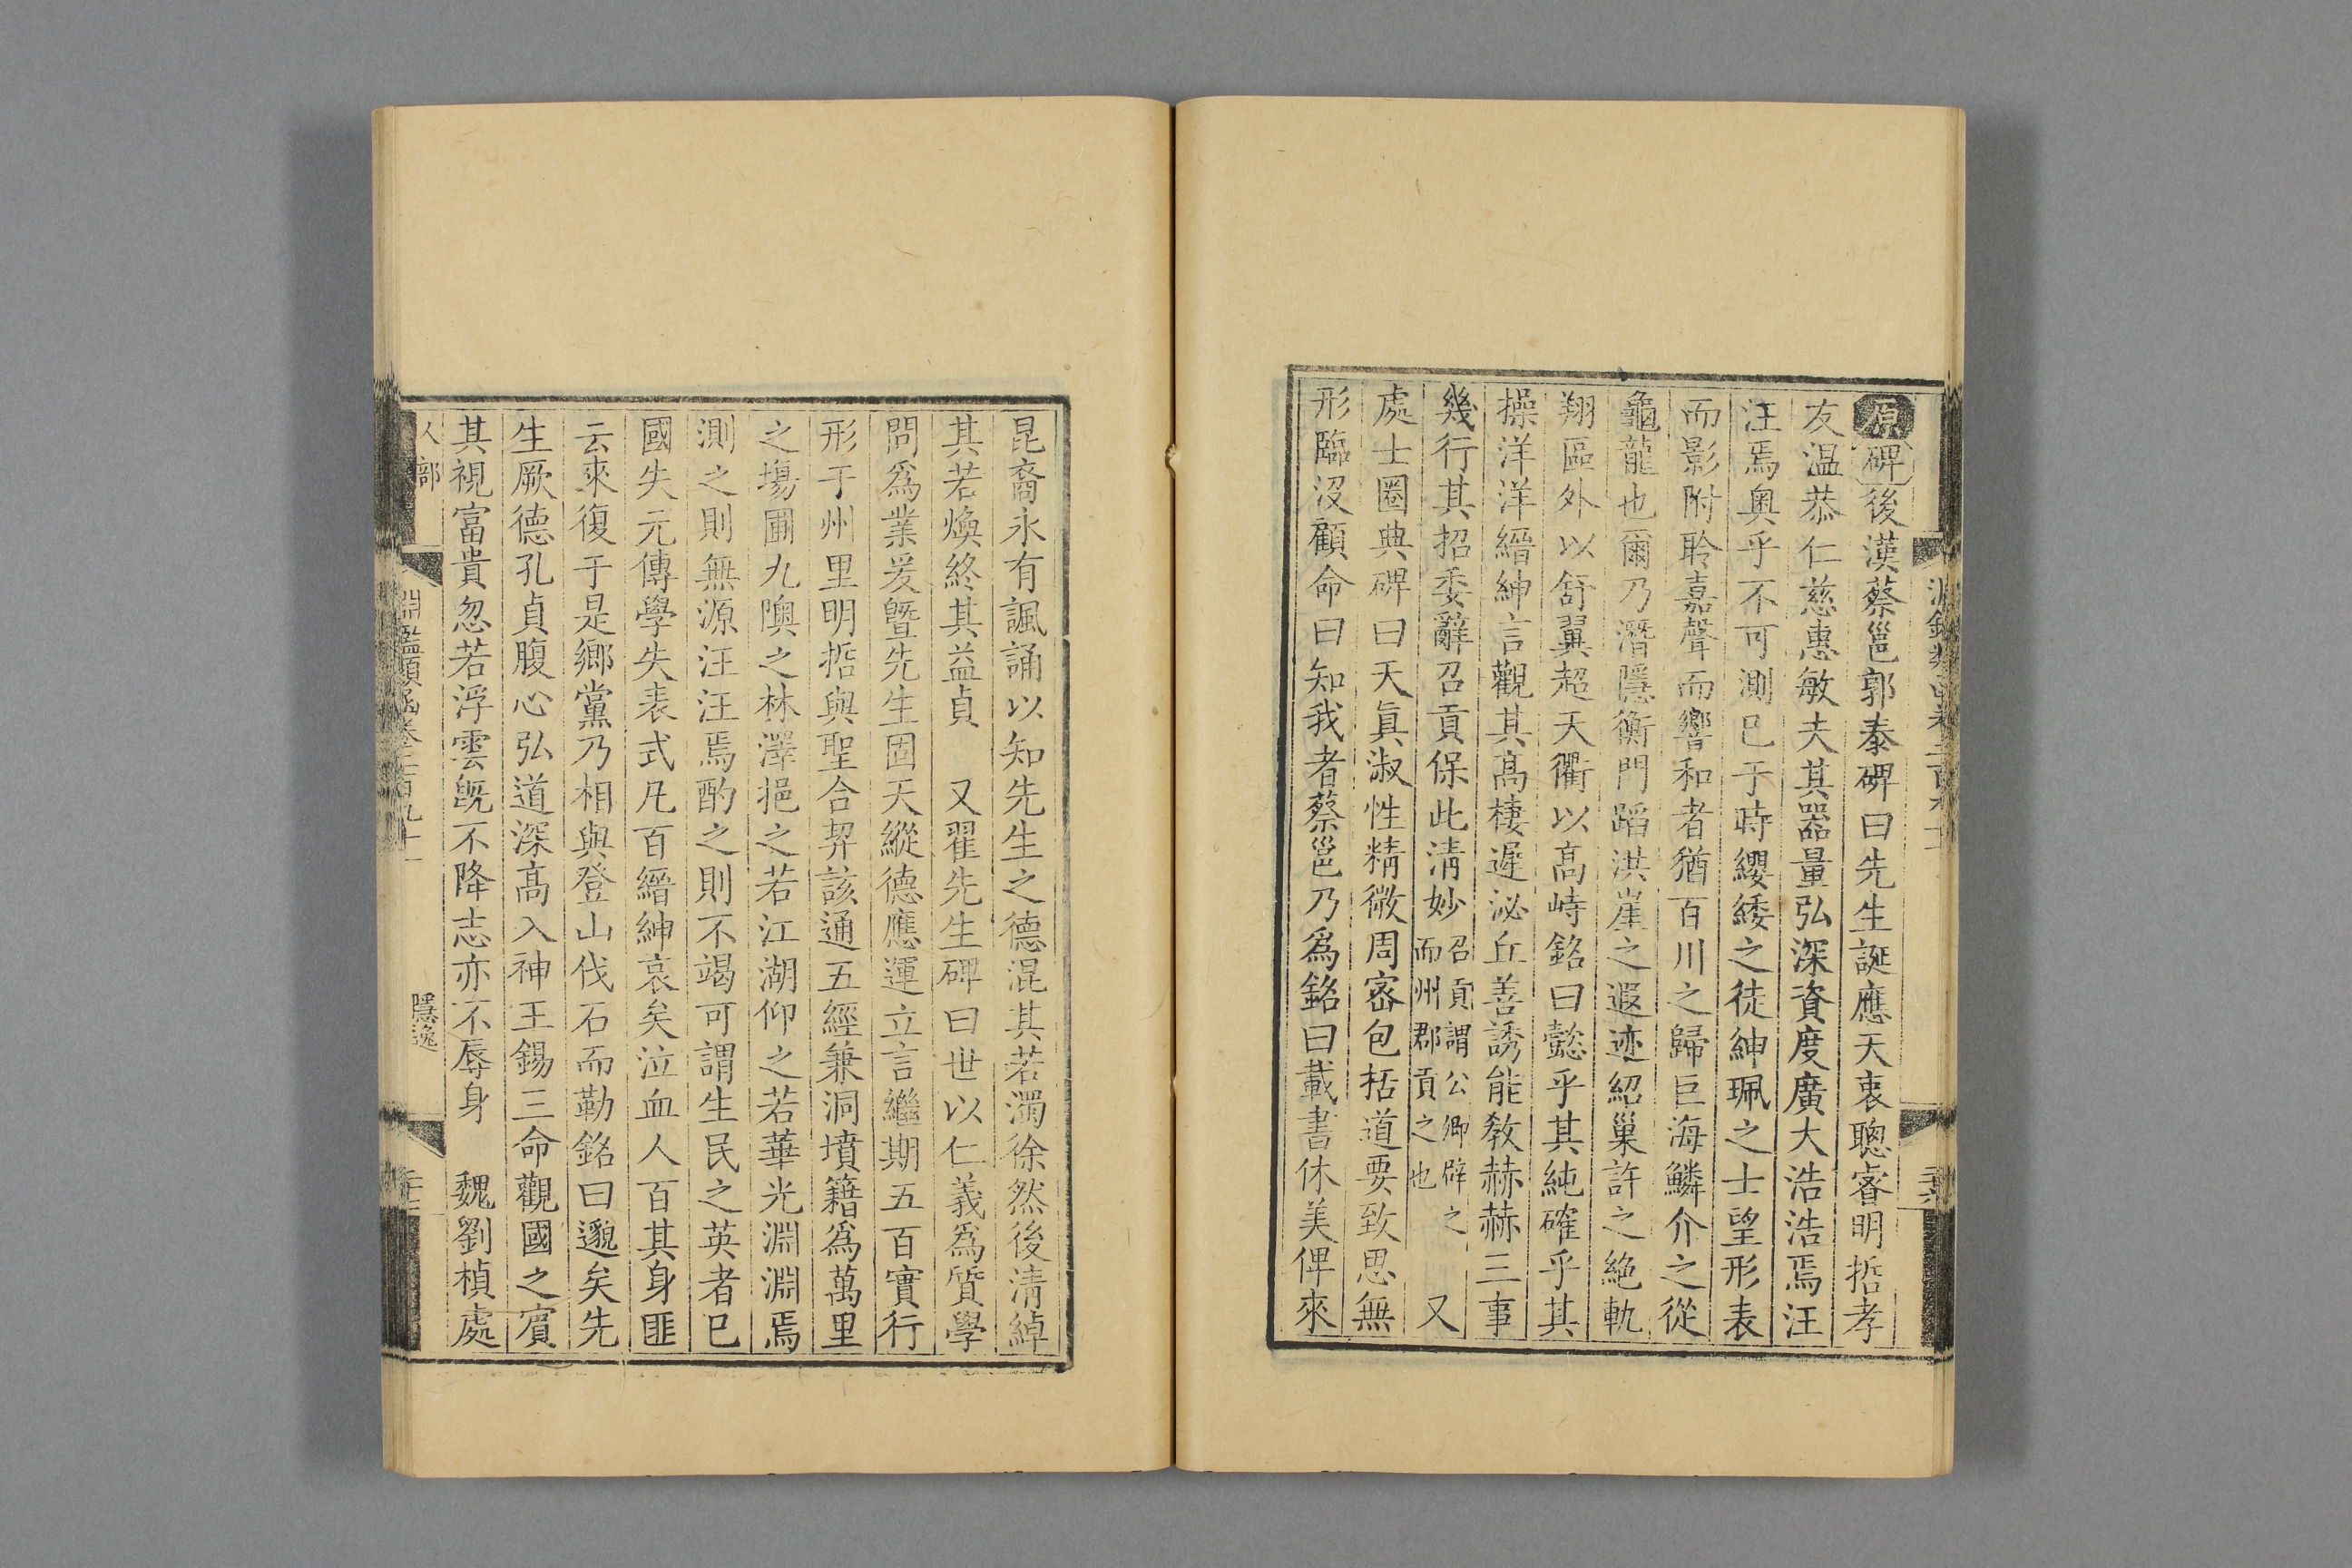 原碑後漢蔡邕郭泰碑曰先生誕應天衷聰睿明哲孝
友温恭仁慈惠敏夫其器量弘深資度廣大浩浩焉汪
汪焉奥乎不可測已于時纓緌之徒紳珮之士望形表
而影附聆嘉聲而響和者猶百川之歸巨海鱗介之從
龜龍也爾乃潛隱衡門蹈洪崖之遐迹紹巢許之絶軌
翔區外以舒翼超天衢以高峙銘曰懿乎其純確乎其
操洋洋縉紳言觀其高棲遲泌丘善誘能教赫赫三事
幾行其招委辭召貢保此清妙召貢謂公卿辟之而州郡貢之也 又
處士圈典碑曰天真淑性精微周宻包括道要致思無
形臨沒顧命曰知我者蔡邕乃爲銘曰載書休美俾來
昆裔永有諷誦以知先生之德混其若濁徐然後清綽
其若煥終其益貞 又翟先生碑曰世以仁義爲質學
問爲業爰曁先生固天縱德應運立言繼期五百實行
形于州里明哲與聖合契該通五經兼洞墳籍爲萬里
之塲圃九隩之林澤挹之若江湖仰之若華光淵淵焉
測之則無源汪汪焉酌之則不竭可謂生民之英者已
國失元傳學失表式凡百縉紳哀矣泣血人百其身匪
云來復于是鄉黨乃相與登山伐石而勒銘曰邈矣先
生厥德孔貞腹心弘道深高入神王錫三命觀國之賔
其視富貴忽若浮雲旣不降志亦不辱身 魏劉楨處
人部 淵鑑類函卷二百九十一 隱逸